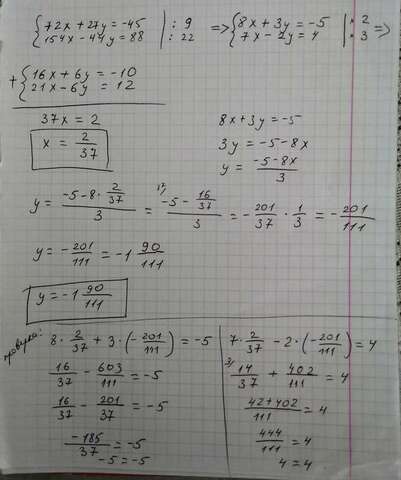 {72x + 27y = -45 | : 9 => {8x + 3y = -5 | * 2
154x - 44y = 88 | : 22 7x - 2y = 4 | * 3 =>
+ {16x + 6y = -10
21x - 6y = 12
37x = 2
x = 2/37
8x + 3y = -5
3y = -5 - 8x
y = (-5 - 8x)/3
y = (-5 - 8 · 2/37)/3 = (-5 - 16/37)/3 = -201/37 · 1/3 = -201/111
y = -201/111 = -1 90/111
y = -1 90/111
проверка:
8 · 2/37 + 3 · (-201/111) = -5
16/37 - 603/111 = -5
16/37 - 201/37 = -5
-185/37 = -5
-5 = -5
7 · 2/37 - 2 · (-201/111) = 4
3/ 14/37 + 402/111 = 4
(42 + 402)/111 = 4
444/111 = 4
4 = 4